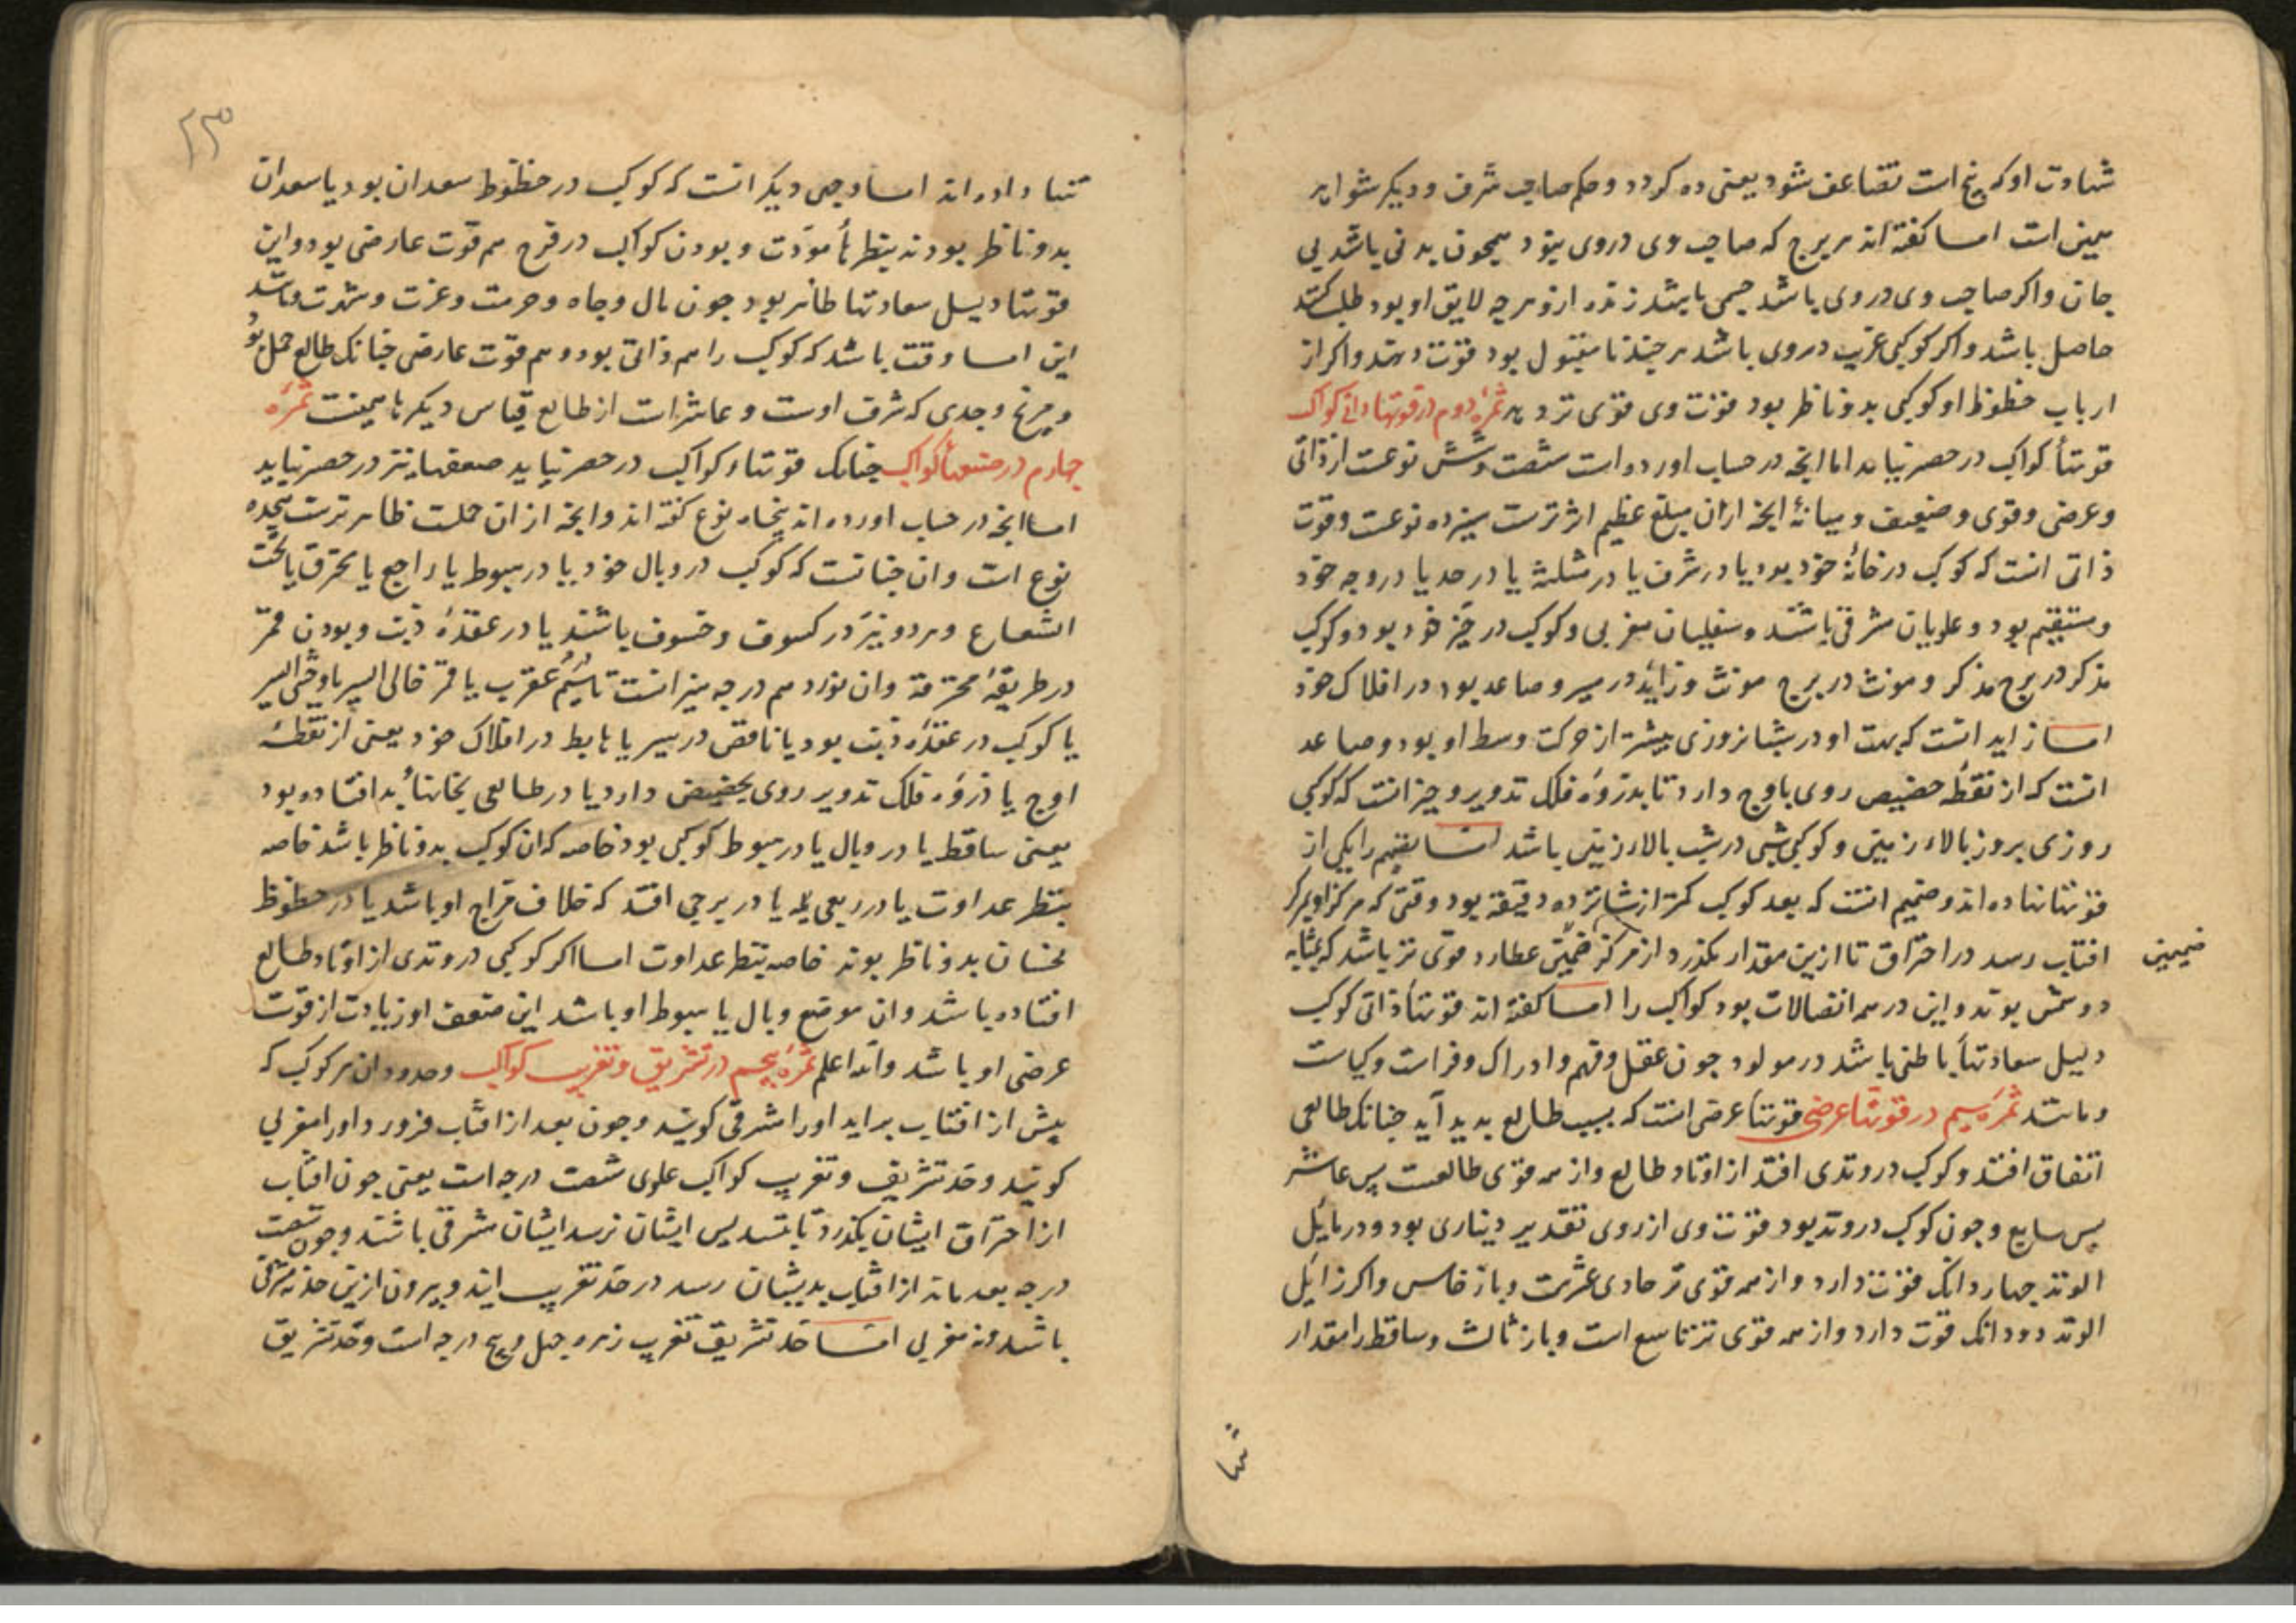 شهادت او که پنج است تضاعف شود یعنی ده کردد و حکم صاحب شرف و دیکر شواهد
همین است اما کفته اند هر برج که صاحب وی در وی بنود همچون بدنی باشد بی
جان و اکر صاحب وی در وی باشد جسمی باشد زنده ازو هرچه لایق او بود طلب کنند
حاصل باشد و اکر کوکبی غریب در وی باشد هر چند نامقبول بود قوت دهد و اکر از
ارباب حظوظ او کوکبی بدو ناظر بود قوت وی قوی تر دهد ثمره دوم در قوتهاء ذاتی کواکب
قوتهأ کواکب در حصر نیاید اما انچه در حساب اورده است شصت و شش نوعست از ذاتی
و عرضی و قوی و ضعیف و میانهٔ انچه ازان مبلغ عظیم اثرترست سیزده نوعست و قوت
ذاتی انست که کوکب در خانهٔ خود بود یا در شرف یا در مثلثه یا در حد یا در وجه خود
و مستقیم بود و علویان مشرقی باشند و سفلیان مغربی و کوکب در حیز خود بود و کوکب
مذکر در برج مذکر و مونث در برج مونث و زاید در سیر و صاعد بود در افلاک خود
اما زاید انست که بهت او در شبانروزی بیشتر از حرکت وسط او بود و صاعد
انست که از نقطه حضیض روی باوج دارد تا بذروه فلک تدویر و حیز انست که کوکبی
روزی بروز بالاء زمین و کوکبی شبی در شب بالاء زمین باشد اما تصمیم را یکی از
قوتها نهاده اند و صمیم انست که بعد کوکب کمتر از شانزده دقیقه بود وقتی که مرکز او بمرکز
افتاب رسد در احتراق تا ازین مقدار بکذرد از مرکز صمیمی عطارد قوی تر باشد که بمثابه
صمیمی
دو شمس بوند و این در همه اتصالات بود کواکب را اما کفته اند قوتهأ ذاتی کوکب
دلیل سعادتهأ باطنی باشد در مولود چون عقل و فهم و ادراک و فراست و کیاست
و مانند ثمره سیم در قوتهأ عرضی قوتهأ عرضی انست که بسبب طالع بدید آید چنانک طالعی
اتفاق افتد و کوکب در وتدی افتد از اوتاد طالع و از همه قوی طالعست پس عاشر
پس سابع و چون کوکب در وتد بود قوت وی از روی تقدیر دیناری بود و در مایل
الوتد چهار دانک قوت دارد و از همه قوی تر حادی عشرست و باز خامس و اکر زایل
الوتد دو دانک قوت دارد و از همه قوی تر تاسع است و باز ثالث و ساقط را مقدار
تنها
۲۳
تنها داده اند اما وجهی دیکر انست که کوکب در حظوظ سعدان بود یا سعدان
بدو ناظر بودند بنظرهأ مودت و بودن کواکب در فرح هم قوت عارضی بود و این
قوتها دلیل سعادتها ظاهر بود چون مال و جاه و حرمت و عزت و شهرت و مانند
این اما وقت باشد که کوکب را هم ذاتی بود و هم قوت عارضی چنانک طالع حمل بود
و مریخ و جدی که شرف اوست و عاشرات از طالع قیاس دیکرها همینست ثمره
چهارم در ضعفهأ کواکب چنانک قوتهاء کواکب در حصر نیاید ضعفها نیز در حصر نیاید
اما انچه در حساب اورده اند پنجاه نوع کفته اند و انچه از ان جملت ظاهر ترست هجده
نوع است و ان چنانست که کوکب در وبال خود یا در هبوط یا راجع یا محترق یا تحت
الشعاع و هر دو نیر در کسوف و خسوف باشند یا در عقده ذنب و بودن قمر
در طریقهٔ محترقه و ان نوزدهم درجه میزانست تا سیم عقرب یا قمر خالی السیر یا وحشی السیر
یا کوکب در عقده ذنب بود یا ناقص در سیر یا هابط در افلاک خود یعنی از نقطهٔ
اوج یا ذروه فلک تدویر روی بحضیض دارد یا در طالعی بخانهأ بد افتاده بود
یعنی ساقط یا در وبال یا در هبوط کوکبی بود خاصه که ان کوکب بدو ناظر باشد خاصه
بنظر عداوت یا در ربعی یا در برجی افتد که خلاف مزاج او باشد یا در حظوظ
نحسان بدو ناظر بوند خاصه بنظر عداوت اما اکر کوکبی در وتدی از اوتاد طالع
افتاده باشد و ان موضع وبال یا هبوط او باشد این ضعف او زیادت از قوت
عرضی او باشد و الله اعلم ثمره پنجم در تشریق و تغریب کواکب و حدود ان هر کوکب که
پیش از افتاب براید او را مشرقی کویند و چون بعد از افتاب فرو رود او را مغربی
کویند و حد تشریق و تغریب کواکب علوی شصت درجه است یعنی چون افتاب
از احتراق ایشان بکذرد تا بتسدیس ایشان نرسد ایشان مشرقی باشند و چون شصت
درجه بعد ماند از افتاب بدیشان رسد در حد تغریب ایند و بیرون ازین حد نه مشرقی
باشد و نه مغربی اما حد تشریق تغریب زهره چهل و پنج درجه است و حد تشریق